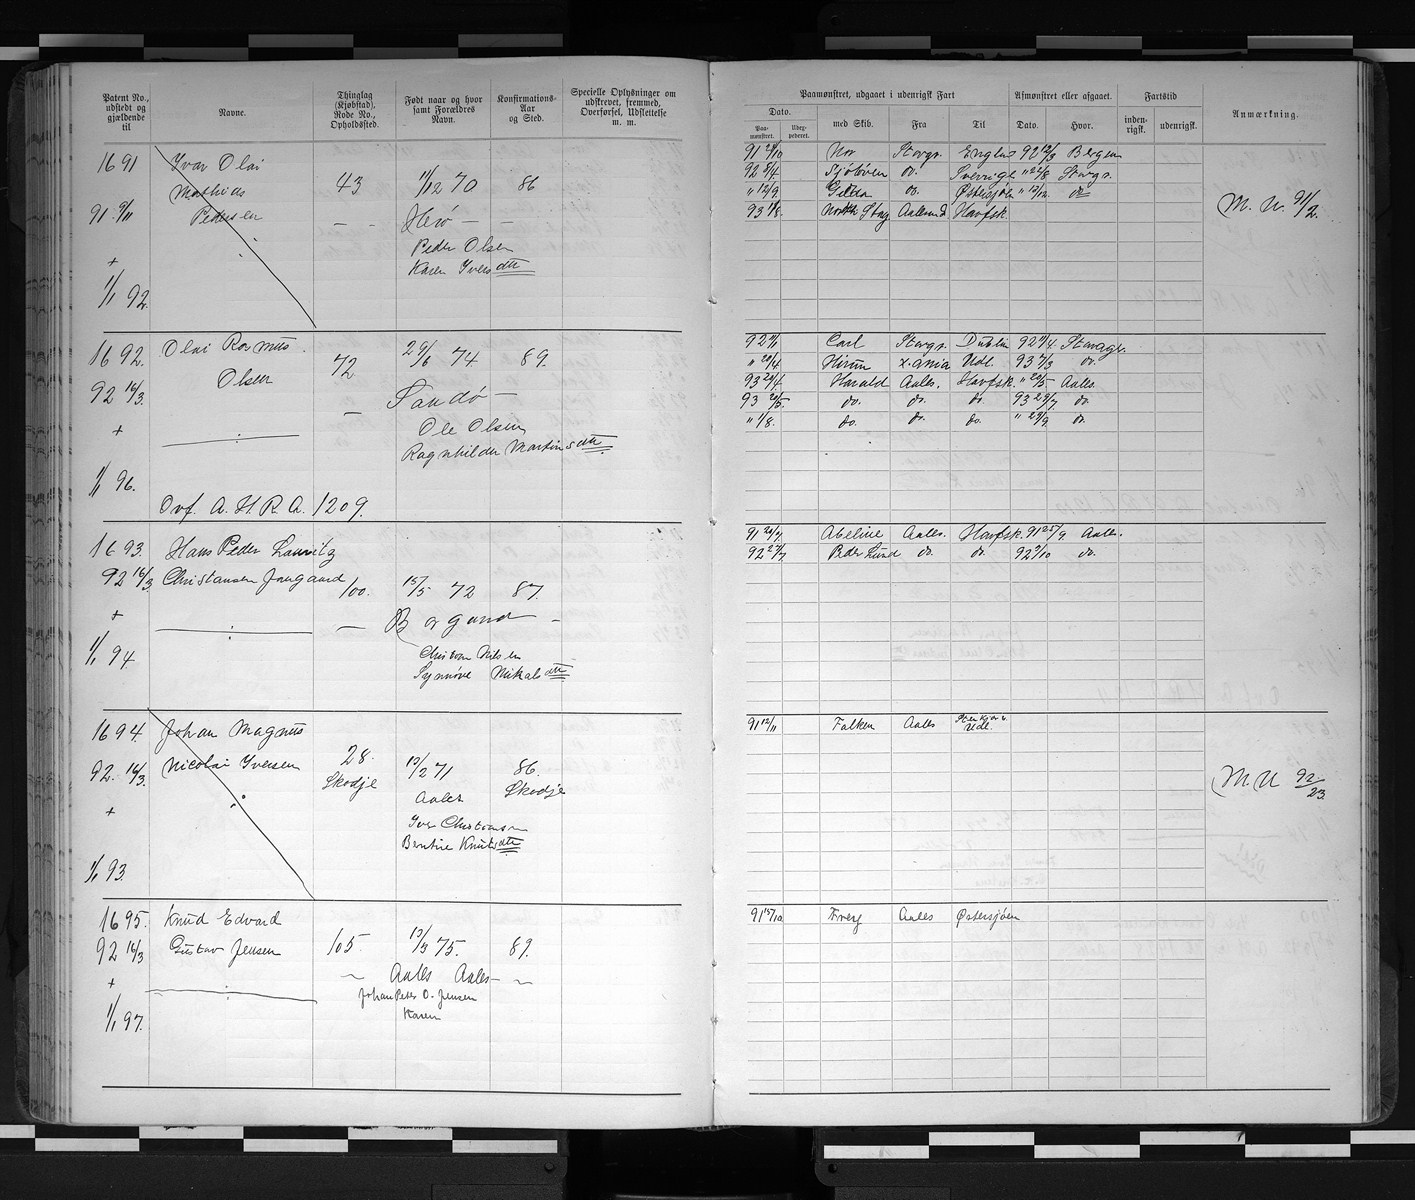 Patent No., udstedt og gjældende til
Navne.
Thinglag (Kjøbstad), Rode No., Opholdssted.
Født naar og hvor samt Forældres Navn.
Konfirmations-Aar og Sted.
Specielle Oplysninger om udskrevet, fremmed, Overførsel, Udslettelse m. m.
Paamønstret, udgaaet i udenrigsk Fart
Afmønstret eller afgaaet.
Fartstid
Anmærkning.
Dato.
Paa-mønstret.
med Skib.
Fra
Til
Dato.
Hvor.
inden-rigsk.
udenrigsk.
1691 Ivar Olai
Mathias 43 11/12 70 86
91 9/11 Pedersen — - Herø — —
Peder Olsen
+ Karen Iversdtr
1/1 92.
91 29/10 Nor Stavgr. Engld 92 12/3 Bergen
92 8/4 do. Sverrige " 24/8 Stavgr.
" 12/9. do. Østersjøen " 13/12. do
93 1/8. Aalesund Havfsk.
M. U. 91/2.
1692. Olai Rasmus 29/6 74. 89.
Olsen 72
92 16/3. — Sandø —
+ Ole Olsen
Ragnhilde Martinsdtr
1/1 96.
Ovf. A. H. R. A. 1209.
92 11/1 Carl Stavgr. Dublin 92 21/4. Stavager.
" 20/4. Hiram X.ania Udl. 93 7/3 do.
93 20/4. Harald Aales. Havfsk. " 20/5 Aales.
93 20/5. do. do. do. 93 29/7. do.
" 1/8. do. do. do. " 29/9. do.
1693. Hans Peder Lauritz
92 16/3. Christansen 100. 15/5 72 87.
+ — Borgund —
Nilsen
1/1 94 Synnøve Mikalsdtr
91 20/7. Abeline Aales. Havfsk. 91 25/9 Aales.
92 27/7. Peder Lund do. do. 92 9/10 do.
1694. Johan Magnus
92. 16/3. Nicolai Iversen 28. 13/2 71 86.
Skodje Skodje
+ Aales
Iver Christiansen
Bentine Knutsdtr
1/1 93.
91 12/11 Falken Aales
Udl.
M. U 92/23.
1695. Knud Edvard
92 16/3 Gustav Jensen 105. 13/3 75. 89.
+ — Aales Aales —
Johan Peter O. Jensen
Karen
1/1 97.
91 15/10 Freg Aales Østersjøen